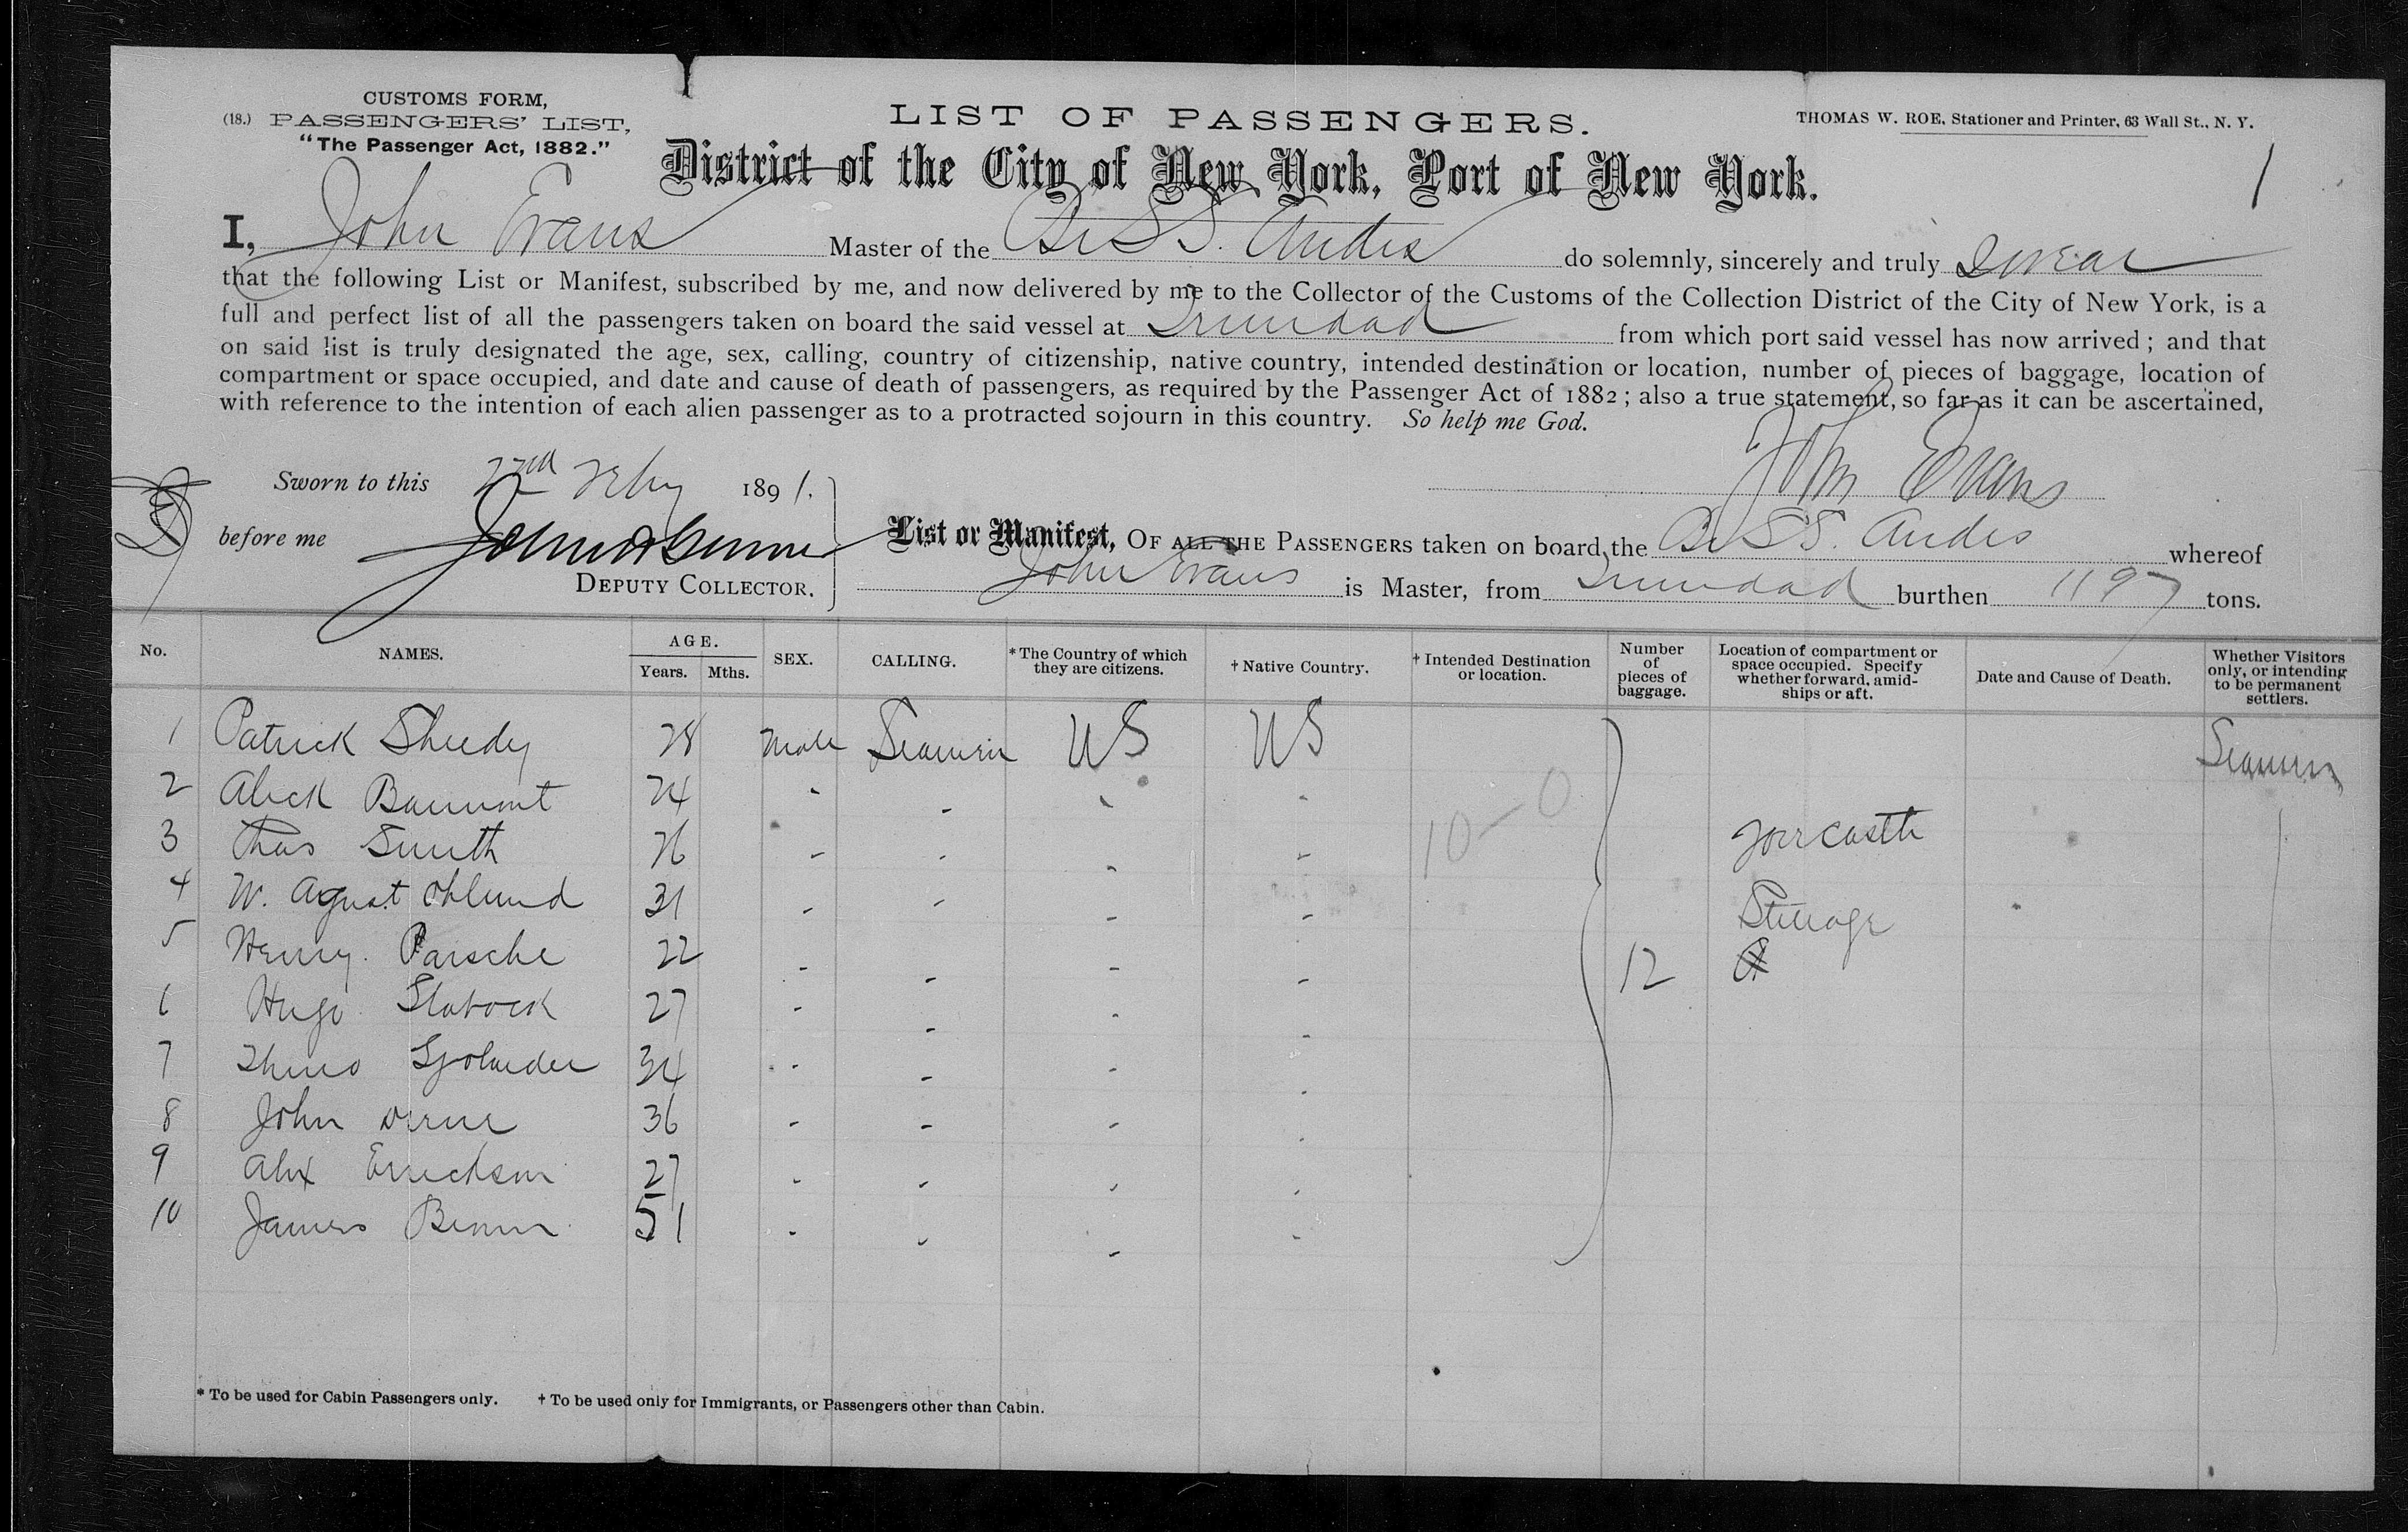 CUSTOMS FORM,
(18.) PASSENGERS' LIST,
"The Passenger Act, 1882."
LIST OF PASSENGERS.
THOMAS W. ROE, Stationer and Printer, 63 Wall St., N. Y.
District of the City of New York, Port of New York.
1
I, John Evans Master of the Br SS. Andes do solemnly, sincerely and truly swear
that the following List or Manifest, subscribed by me, and now delivered by me to the Collector of the Customs of the Collection District of the City of New York, is a
full and perfect list of all the passengers taken on board the said vessel at Trinidad from which port said vessel has now arrived; and that
on said list is truly designated the age, sex, calling, country of citizenship, native country, intended destination or location, number of pieces of baggage, location of
compartment or space occupied, and date and cause of death of passengers, as required by the Passenger Act of 1882; also a true statement, so far as it can be ascertained,
with reference to the intention of each alien passenger as to a protracted sojourn in this country. So help me God.
John Evans
Sworn to this 2nd Feby 1891.
before me
DEPUTY COLLECTOR.
List or Manifest, OF ALL THE PASSENGERS taken on board the Br SS. Andes whereof
John Evans is Master, from Trinidad burthen 1197 tons.
No. NAMES. AGE. Years. Mths. SEX. CALLING. *The Country of which they are citizens. †Native Country. †Intended Destination or location. Number of pieces of baggage. Location of compartment or space occupied. Specify whether forward, amidships or aft. Date and Cause of Death. Whether Visitors only, or intending to be permanent settlers.
1 Patrick Sheedy 28 Male Seamen US US Seamen
2 Alick 24 - - - -
3 Thos Smith 26 - - - - 10-0 Forcastle
4 W. Agust Ohlund 31 - - - - Steerage
5 Henry Parsche 22 - - - - 12
6 Hugo 27 - - - -
7 34 - - - -
8 John 36 - - - -
9 Alex Errickson 27 - - - -
10 James 51 - - - -
* To be used for Cabin Passengers only. † To be used only for Immigrants, or Passengers other than Cabin.